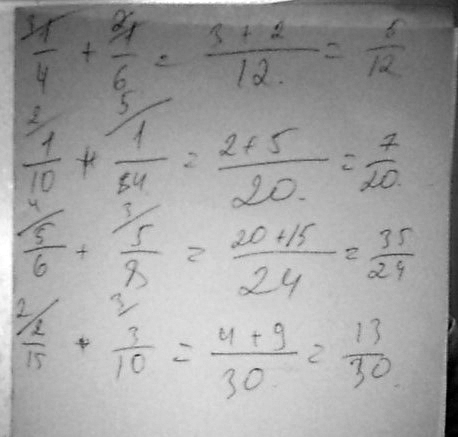 3/1/4 + 2/1/6 = 3+2/12. = 5/12
2/1/10 + 5/1/4 = 2+5/20. = 7/20.
4/5/6 + 3/5/8 = 20+15/24 = 35/24
2/2/15 + 3/3/10 = 4+9/30. = 13/30.